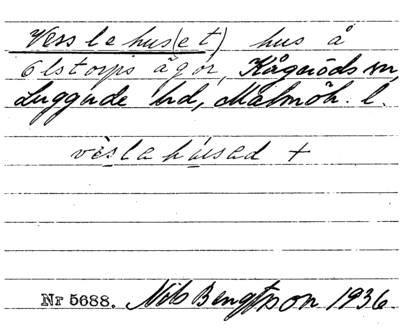 Vesslehus(et) hus å
Olstorps ägor, Kågeröds sn,
Luggude hd, Malmöh. l.
vèslahúsad +
Nr 5688. Nils Bengtsson 1936